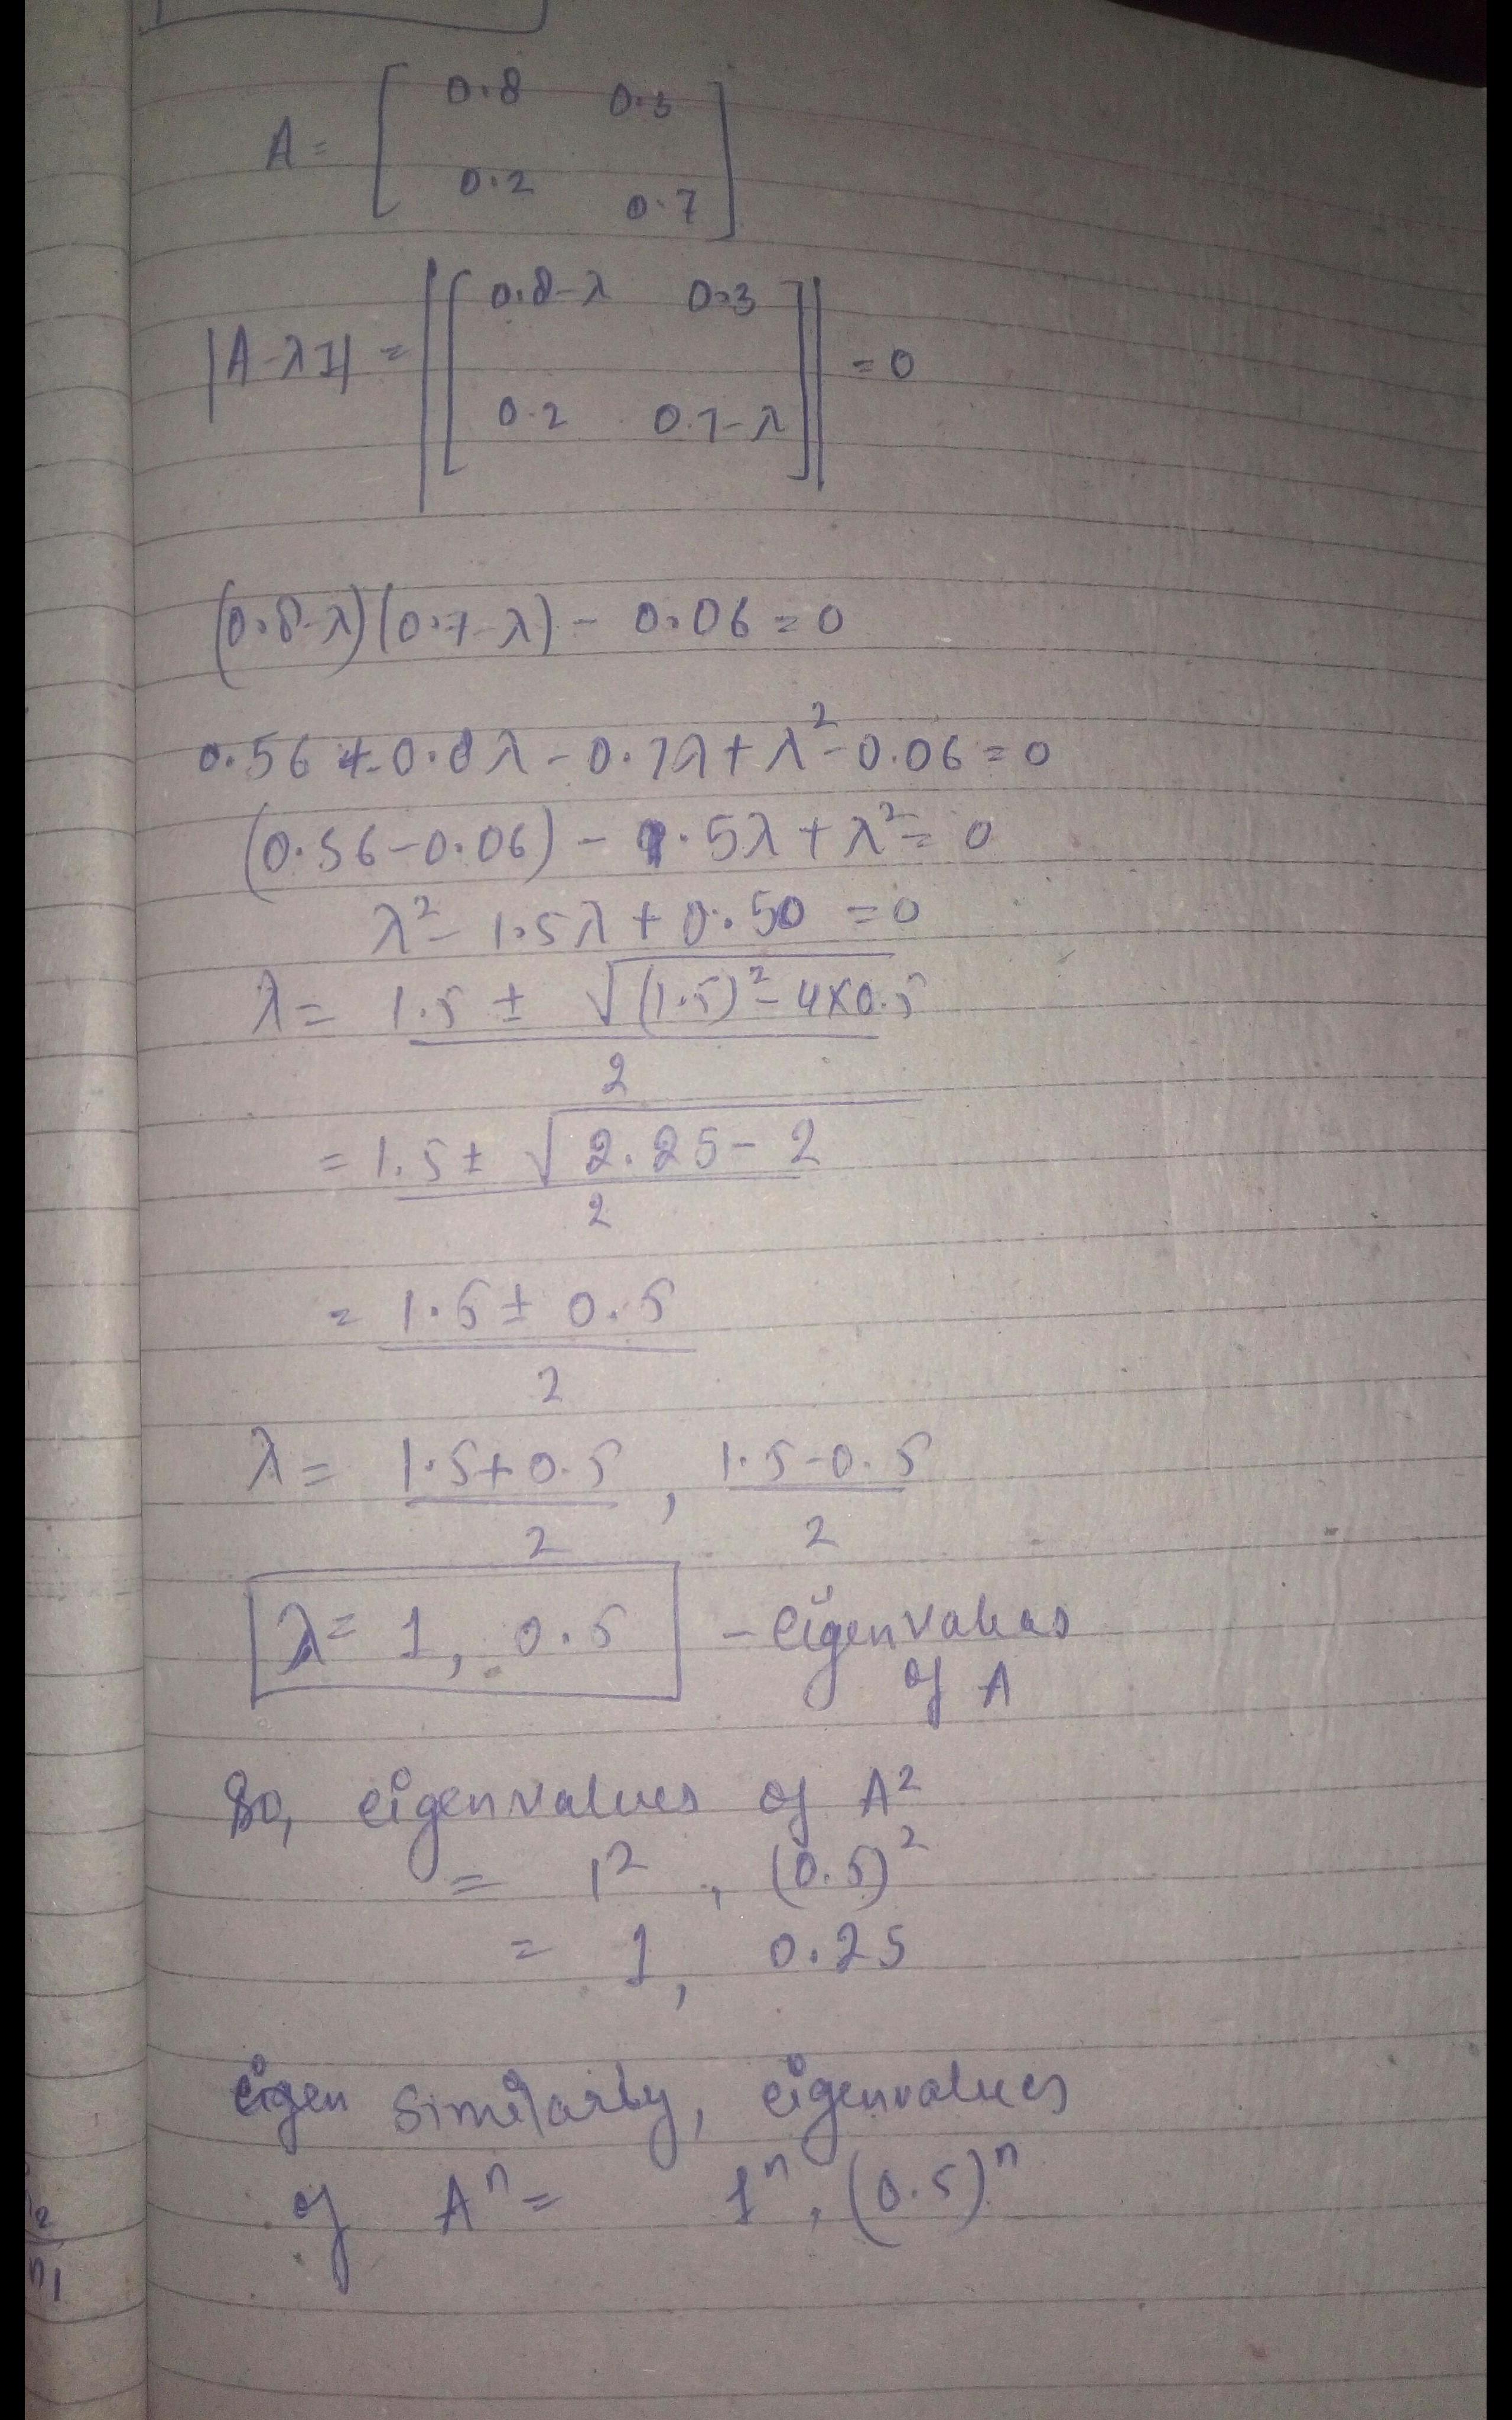 A = [ 0.8 0.3
0.2 0.7 ]
|A-λI| = |[ 0.8-λ 0.3
0.2 0.7-λ ]| = 0
(0.8-λ)(0.7-λ) - 0.06 = 0
0.56 - 0.8λ - 0.7λ + λ² - 0.06 = 0
(0.56-0.06) - 1.5λ + λ² = 0
λ² - 1.5λ + 0.50 = 0
λ = 1.5 ± √(1.5)² - 4×0.5
2
= 1.5 ± √2.25 - 2
2
= 1.5 ± 0.5
2
λ = 1.5+0.5 , 1.5-0.5
2 2
λ = 1, 0.5 - eigenvalues
of A
So, eigenvalues of A²
= 1² , (0.5)²
= 1, 0.25
eigen similarly, eigenvalues
of Aⁿ = 1ⁿ, (0.5)ⁿ
n₁